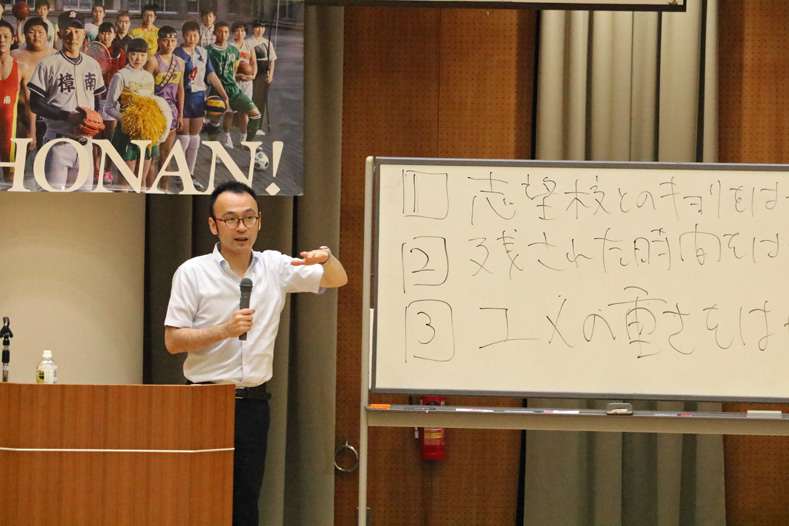 HONAN!
樟南
1 志望校とのキョリをは
2 残された時間をは
3 ユメの重さをは